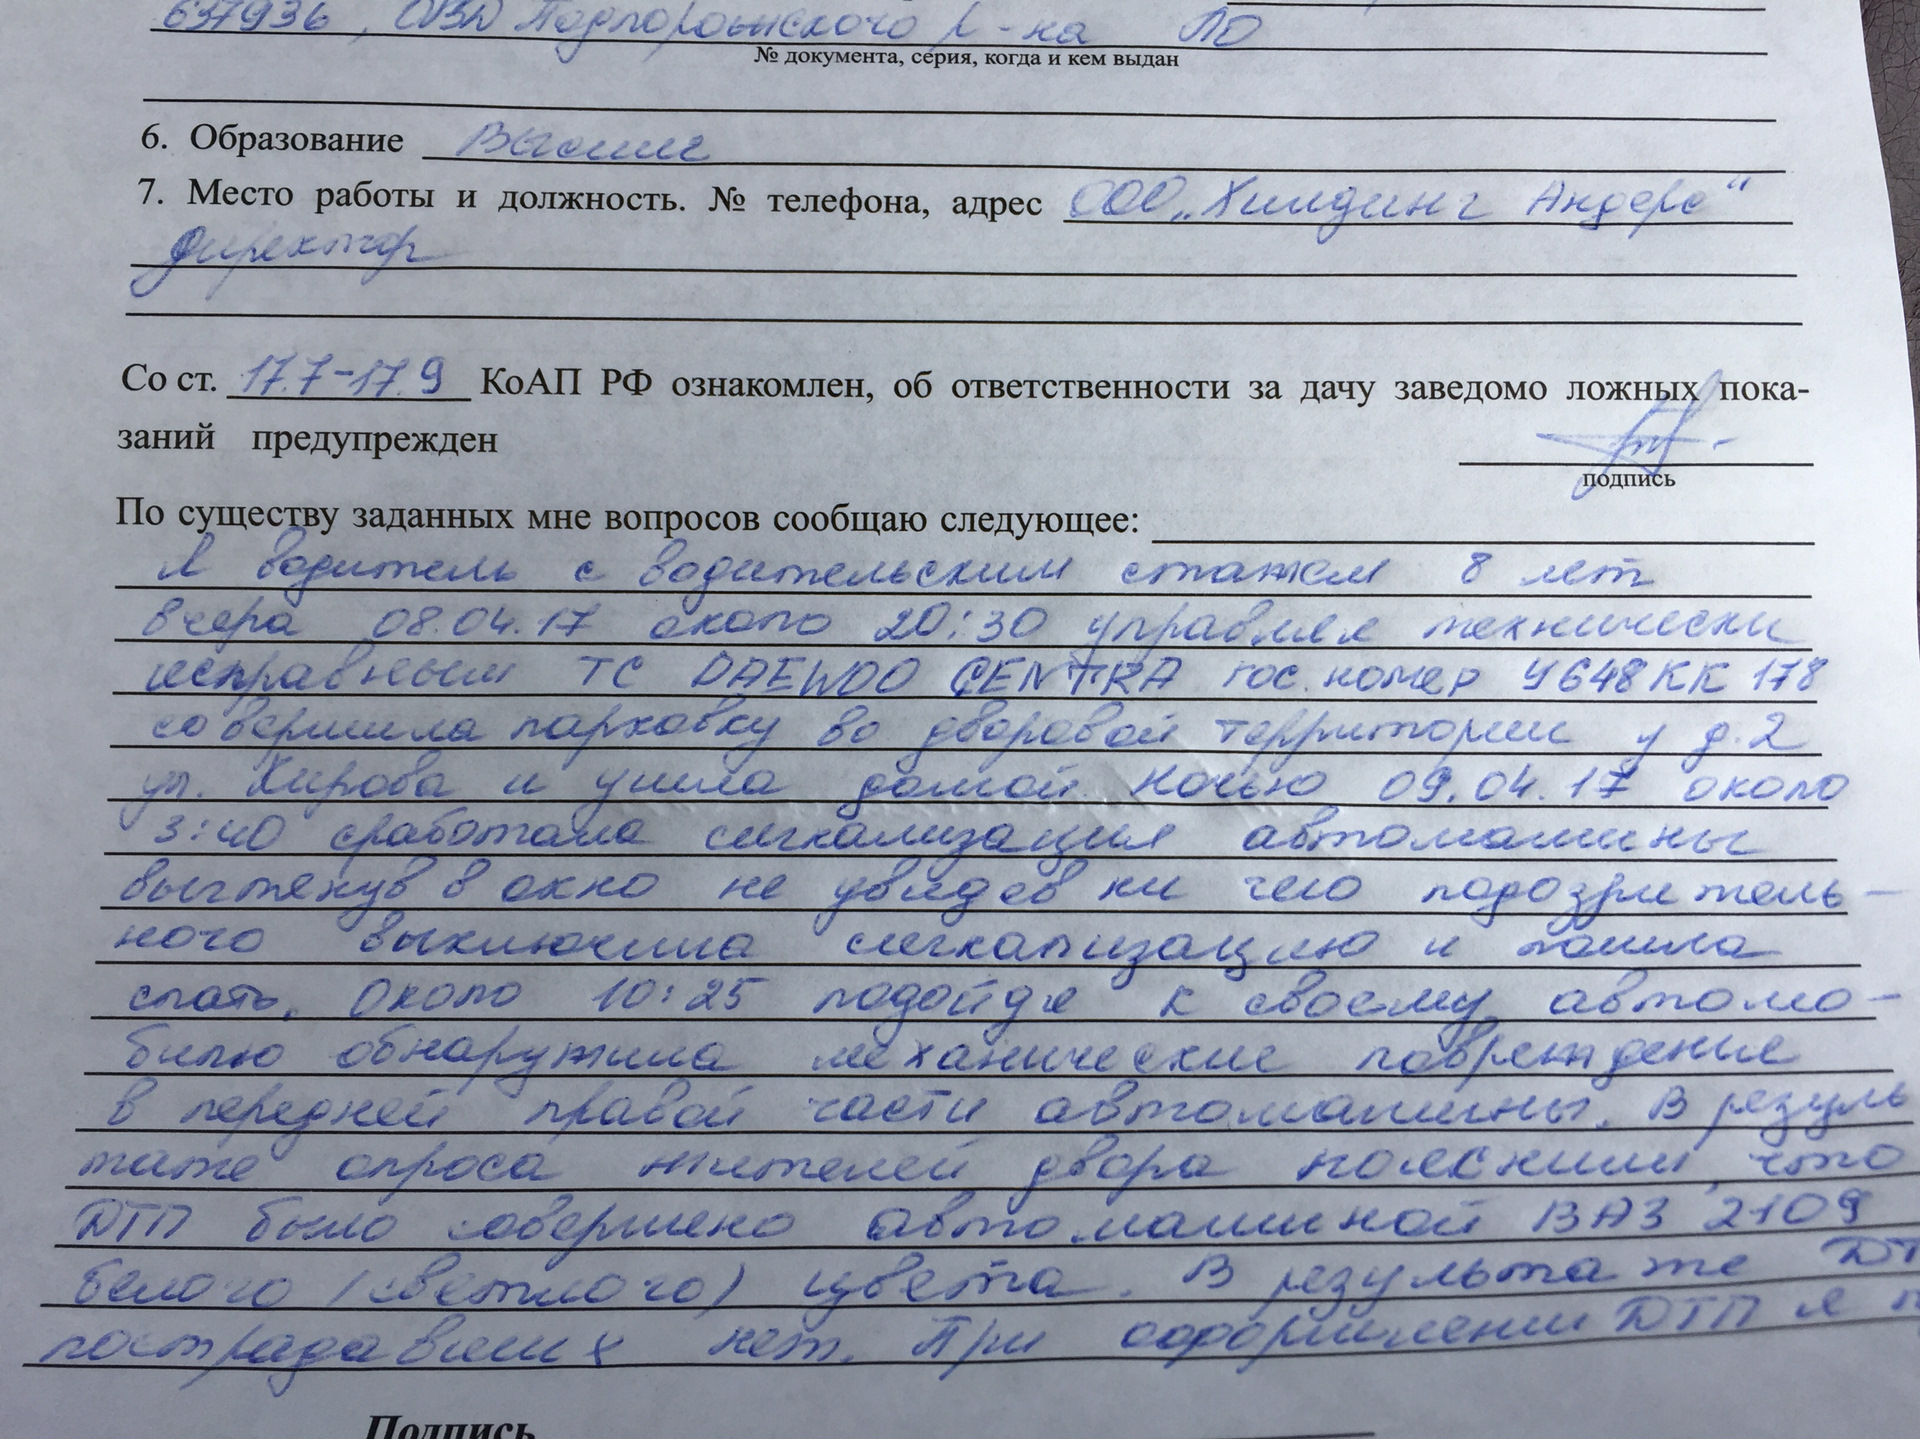 637936, ОВД Подпорожского р-на ЛО
№ документа, серия, когда и кем выдан
6. Образование Высшее
7. Место работы и должность. № телефона, адрес ООО „Хилдинг Андерс“
директор
Со ст. 17.7-17.9 КоАП РФ ознакомлен, об ответственности за дачу заведомо ложных пока-
заний предупрежден
подпись
По существу заданных мне вопросов сообщаю следующее:
Я водитель с водительским стажем 8 лет
вчера 08.04.17 около 20:30 управляя технически
исправным ТС DAEWOO GENTRA гос. номер У648КК 178
совершила парковку во дворовой территории у д.2
ул. Кирова и ушла домой. Ночью 09.04.17 около
3:40 сработала сигнализация автомашины
выглянув в окно не увидев ни чего подозритель-
ного выключила сигнализацию и пошла
спать. Около 10:25 подойдя к своему автомо-
билю обнаружила механические повреждение
в передней правой части автомашины. В резуль
тате опроса жителей двора пояснили, что
ДТП было совершено автомашиной ВАЗ 2109
белого (светлого) цвета. В результате ДТ
пострадавших нет. При оформлении ДТП я п
Подпись